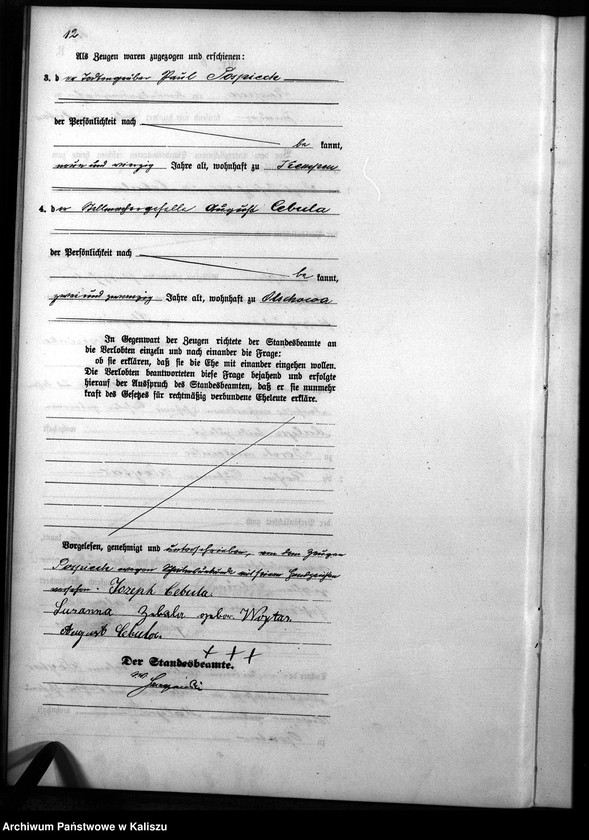 12
Als Zeugen waren zugezogen und erschienen:
3. der Todtengräber Paul Pospiech
der Persönlichkeit nach
be kannt,
neun und vierzig Jahre alt, wohnhaft zu Kempen
4. der Stellmachergeselle August Cebula
der Persönlichkeit nach
be kannt,
zwei und zwanzig Jahre alt, wohnhaft zu Olschowa
In Gegenwart der Zeugen richtete der Standesbeamte an
die Verlobten einzeln und nach einander die Frage:
ob sie erklären, daß sie die Ehe mit einander eingehen wollen.
Die Verlobten beantworteten diese Frage bejahend und erfolgte
hierauf der Ausspruch des Standesbeamten, daß er sie nunmehr
kraft des Gesetzes für rechtmäßig verbundene Eheleute erkläre.
Vorgelesen, genehmigt und unterschrieben, von dem Zeugen
Pospiech wegen Schreibunkunde mit seinem Handzeichen
versehen. Jozeph Cebula.
Zuzanna Zebala gebor. Wojtas.
August Cebula.
+ + +
Der Standesbeamte.
Archiwum Państwowe w Kaliszu